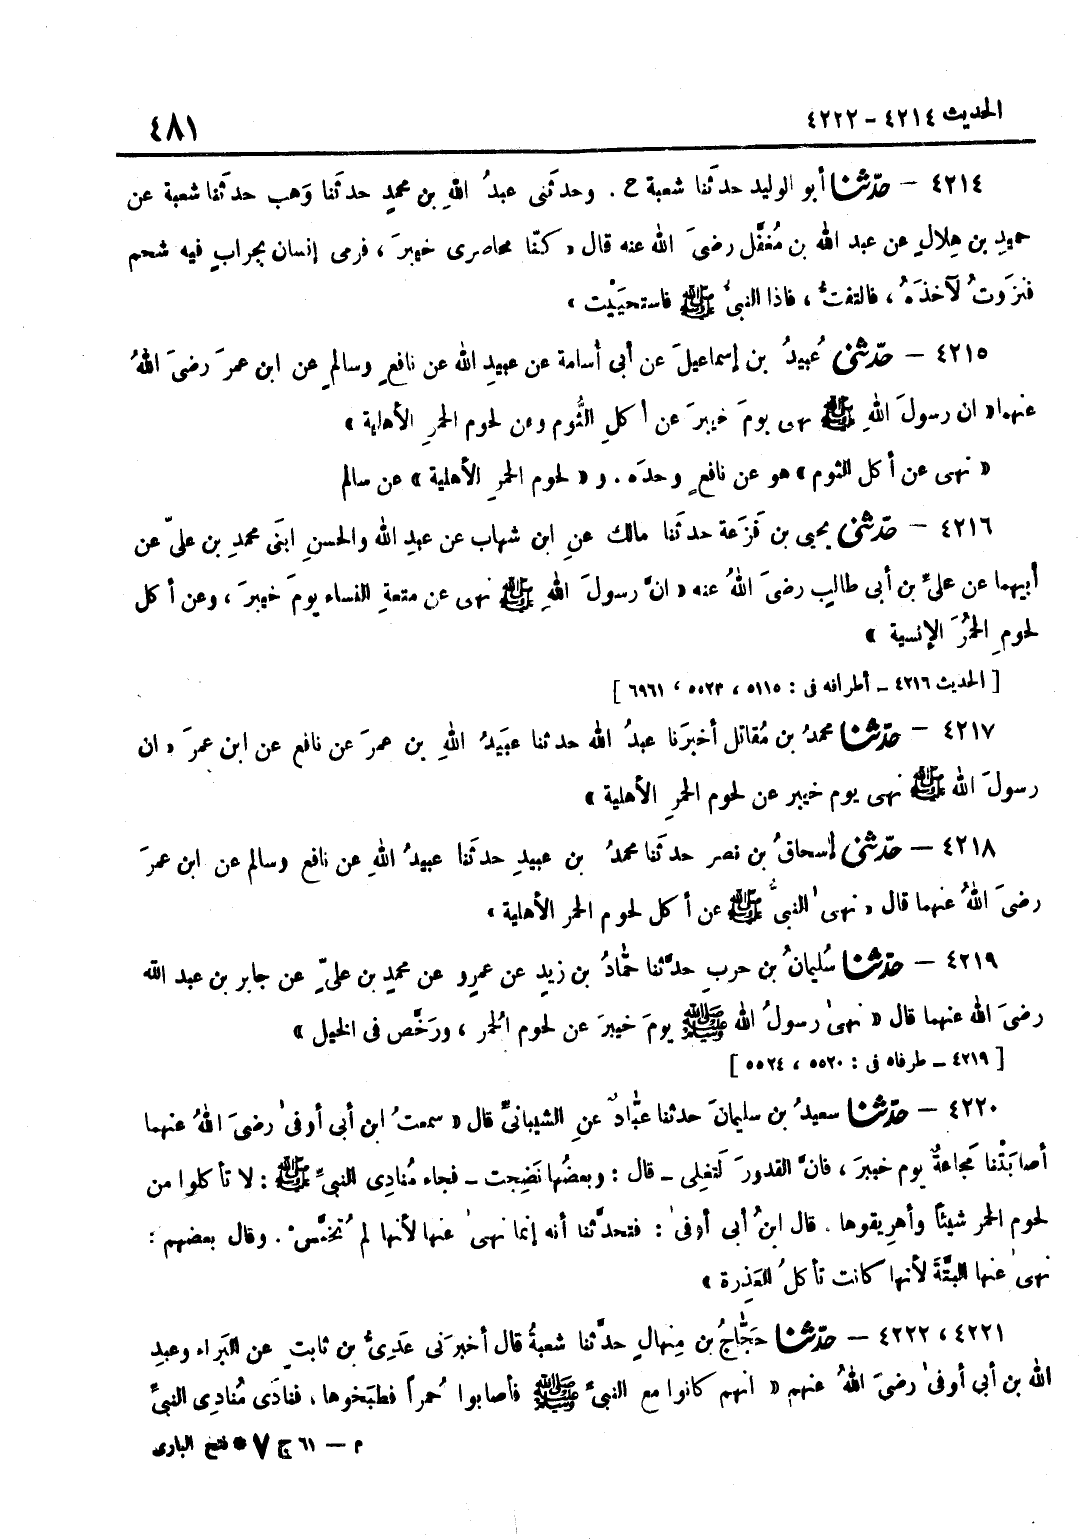 الحديث ٤٢١٤ - ٤٢٢٢
٤٨١
٤٢١٤ - حدّثنا أبو الوليد حدثَنا شعبة ح . وحدثَنى عبدُ اللهِ بن محمدٍ حدثَنا وَهب حدثَنا شعبة عن
حميدِ بن هِلالٍ عن عبد الله بن مُغفَّل رضىَ الله عنه قال « كنّا محاصرى خيبرَ ، فرمى إنسان بجرابٍ فيه شحم
فنزَوتُ لآخذَهُ ، فالتفتُّ ، فاذا النبىُّ ﷺ فاستحيَيْت »
٤٢١٥ - حدّثنى عُبيدُ بن إسماعيلَ عن أبى أسامة عن عبيدِ الله عن نافعٍ وسالمٍ عن ابن عمرَ رضىَ اللهُ
عنهما « ان رسولَ اللهِ ﷺ نهى يومَ خيبرَ عن أكلِ الثُّوم وعن لحوم الحمرِ الأهلية »
« نهى عن أكل الثوم » هو عن نافعٍ وحدَه . و « لحوم الحمرِ الأهلية » عن سالم
٤٢١٦ - حدّثنى يحيى بن قَزَعة حدثَنا مالك عنِ ابن شهاب عن عبدِ الله والحسنِ ابنَى محمدِ بن علىّ عن
أبيهما عن علىِّ بن أبى طالبٍ رضىَ اللهُ عنه « انَّ رسولَ اللهِ ﷺ نهى عن متعةِ النساء يومَ خيبرَ ، وعن أكل
لحومِ الحمُرَ الإنسية »
[ الحديث ٤٢١٦ - أطرافه فى : ٥١١٥ ، ٥٥٢٣ ، ٦٩٦١ ]
٤٢١٧ - حدّثنا محمدُ بن مُقاتل أخبرَنا عبدُ الله حدثنا عبَيدُ اللهِ بن عمرَ عن نافع عن ابن عمرَ « ان
رسولَ الله ﷺ نهى يوم خيبر عن لحوم الحمرِ الأهلية »
٤٢١٨ - حدّثنى إسحاقُ بن نصر حدثَنا محمدُ بن عبيدٍ حدثَنا عبيدُ اللهِ عن نافع وسالم عن ابن عمرَ
رضىَ اللهُ عنهما قال « نهى النبىُّ ﷺ عن أكل لحوم الحمر الأهلية »
٤٢١٩ - حدّثنا سُليمانُ بن حربٍ حدَّثنا حمّادُ بن زيدٍ عن عمرٍو عن محمدِ بن علىٍّ عن جابر بن عبد الله
رضىَ الله عنهما قال « نهىٰ رسولُ الله ﷺ يومَ خيبرَ عن لحوم الُحمر ، ورَخَّص فى الخيل »
[ ٤٢١٩ - طرفاه فى : ٥٥٢٠ ، ٥٥٢٤ ]
٤٢٢٠ - حدّثنا سعيدُ بن سليمانَ حدثنا عبّادٌ عنِ الشيبانىِّ قال « سمعتُ ابن أبى أوفىٰ رضىَ اللهُ عنهما
أصابَتْنا مَجاعةٌ يوم خيبرَ ، فانَّ القدورَ لَتغلِى - قال : وبعضُها نَضِجت - فجاء مُنادِى النبىِّ ﷺ : لا تأكلوا من
لحوم الحمر شيئاً وأهرِيقوها . قال ابنُ أبى أوفىٰ : فتحدَّثنا أنه إنما نهىٰ عنها لأنها لم تُخمَّسْ . وقال بعضهم :
نهىٰ عنها البتَّةَ لأنها كانت تأكلُ العَذِرة »
٤٢٢١ ، ٤٢٢٢ - حدّثنا حَجّاجُ بن مِنهالٍ حدَّثنا شعبةُ قال أخبرَنى عَدِىُّ بن ثابتٍ عن البَراء وعبدِ
الله بن أبى أوفىٰ رضىَ اللهُ عنهم « انهم كانوا مع النبىِّ ﷺ فأصابوا حُمراً فطبَخوها ، فنادَى مُنادِى النبىِّ
م - ٦١ ج ٧ * فتح البارى